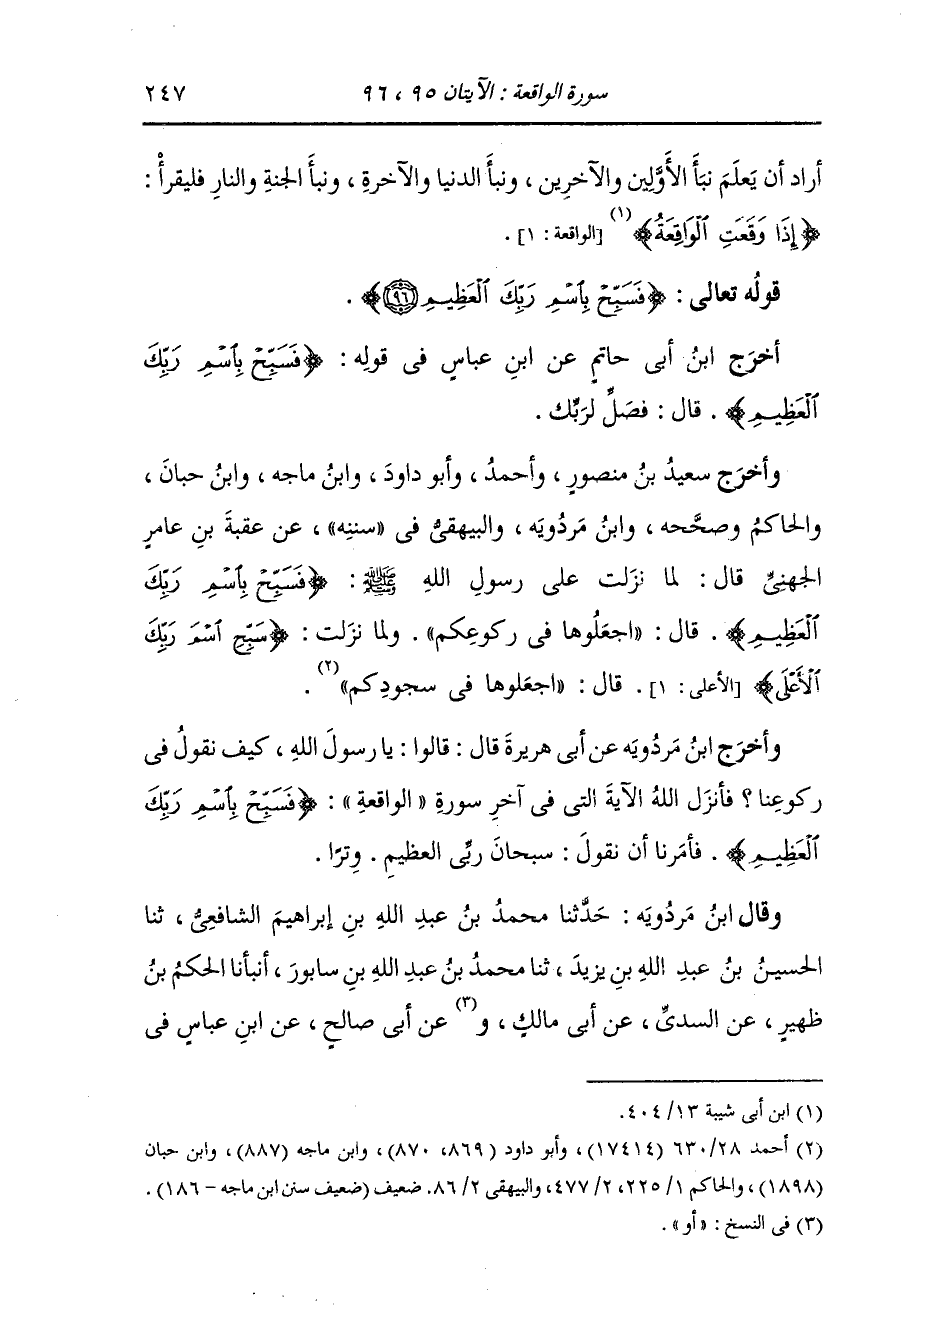 سورة الواقعة : الآيتان ٩٥ ، ٩٦ ٢٤٧
أراد أن يَعلَمَ نبَأَ الأَوَّلِين والآخرِين ، ونبأَ الدنيا والآخرةِ ، ونبأَ الجنةِ والنارِ فليقرأْ :
﴿إِذَا وَقَعَتِ ٱلْوَاقِعَةُ﴾(١) [الواقعة : ١] .
قولُه تعالى : ﴿فَسَبِّحْ بِٱسْمِ رَبِّكَ ٱلْعَظِيمِ ٩٦﴾ .
أخرَج ابنُ أبى حاتمٍ عن ابنِ عباسٍ فى قولِه : ﴿فَسَبِّحْ بِٱسْمِ رَبِّكَ
ٱلْعَظِيمِ﴾ . قال : فصَلِّ لرَبِّك .
وأخرَج سعيدُ بنُ منصورٍ ، وأحمدُ ، وأبو داودَ ، وابنُ ماجه ، وابنُ حبانَ ،
والحاكمُ وصحَّحه ، وابنُ مَردُويَه ، والبيهقىُّ فى «سننِه» ، عن عقبةَ بنِ عامرٍ
الجهنىِّ قال : لما نزَلت على رسولِ اللهِ ﷺ : ﴿فَسَبِّحْ بِٱسْمِ رَبِّكَ
ٱلْعَظِيمِ﴾ . قال : «اجعَلُوها فى ركوعِكم» . ولما نزَلت : ﴿سَبِّحِ ٱسْمَ رَبِّكَ
ٱلْأَعْلَى﴾ [الأعلى : ١] . قال : «اجعَلوها فى سجودِكم»(٢) .
وأخرَج ابنُ مَردُويَه عن أبى هريرةَ قال : قالوا : يا رسولَ اللهِ ، كيف نقولُ فى
ركوعِنا ؟ فأنزَل اللهُ الآيةَ التى فى آخرِ سورةِ «الواقعةِ» : ﴿فَسَبِّحْ بِٱسْمِ رَبِّكَ
ٱلْعَظِيمِ﴾ . فأمَرنا أن نقولَ : سبحانَ ربِّى العظيمِ . وِترًا .
وقال ابنُ مَردُويَه : حَدَّثنا محمدُ بنُ عبدِ اللهِ بنِ إبراهيمَ الشافعىُّ ، ثنا
الحسينُ بنُ عبدِ اللهِ بنِ يزيدَ ، ثنا محمدُ بنُ عبدِ اللهِ بنِ سابورَ ، أنبأنا الحكمُ بنُ
ظهيرٍ ، عن السدىِّ ، عن أبى مالكٍ ، و(٣) عن أبى صالحٍ ، عن ابنِ عباسٍ فى
(١) ابن أبى شيبة ١٣/ ٤٠٤.
(٢) أحمد ٦٣٠/٢٨ (١٧٤١٤) ، وأبو داود (٨٦٩، ٨٧٠) ، وابن ماجه (٨٨٧) ، وابن حبان
(١٨٩٨) ، والحاكم ١/ ٢٢٥، ٢/ ٤٧٧، والبيهقى ٢/ ٨٦. ضعيف (ضعيف سنن ابن ماجه - ١٨٦) .
(٣) فى النسخ : «أو» .